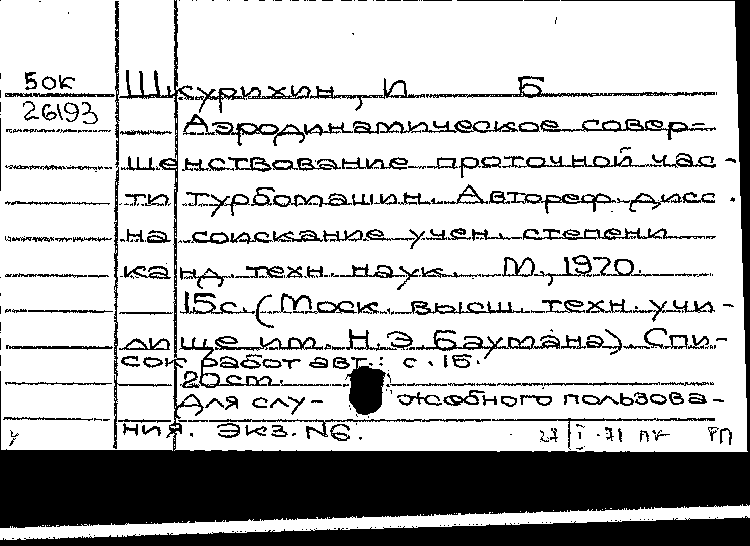 50к Шкурихин, И Б
26193
Аэродинамическое совер=
шенствование проточной час-
ти турбомашин. Автореф. дисс.
на соискание учен. степени
канд. техн. наук. М., 1970.
15с. (Моск. высш. техн. учи-
лище им. Н.Э. Баумана). Спи-
сок работ авт.: с. 15.
20 cm.
Для слу- жебного пользова-
ния. Экз. N6.
27 I -71